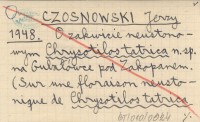 CZOSNOWSKI Jerzy
1948. O zakwicie neustono-
wym Chrysotilos tatrica n.sp.
na Gubałówce pod Zakopanem.
(Sur une floraison neusto-
nique de Chrysotilos tatrica